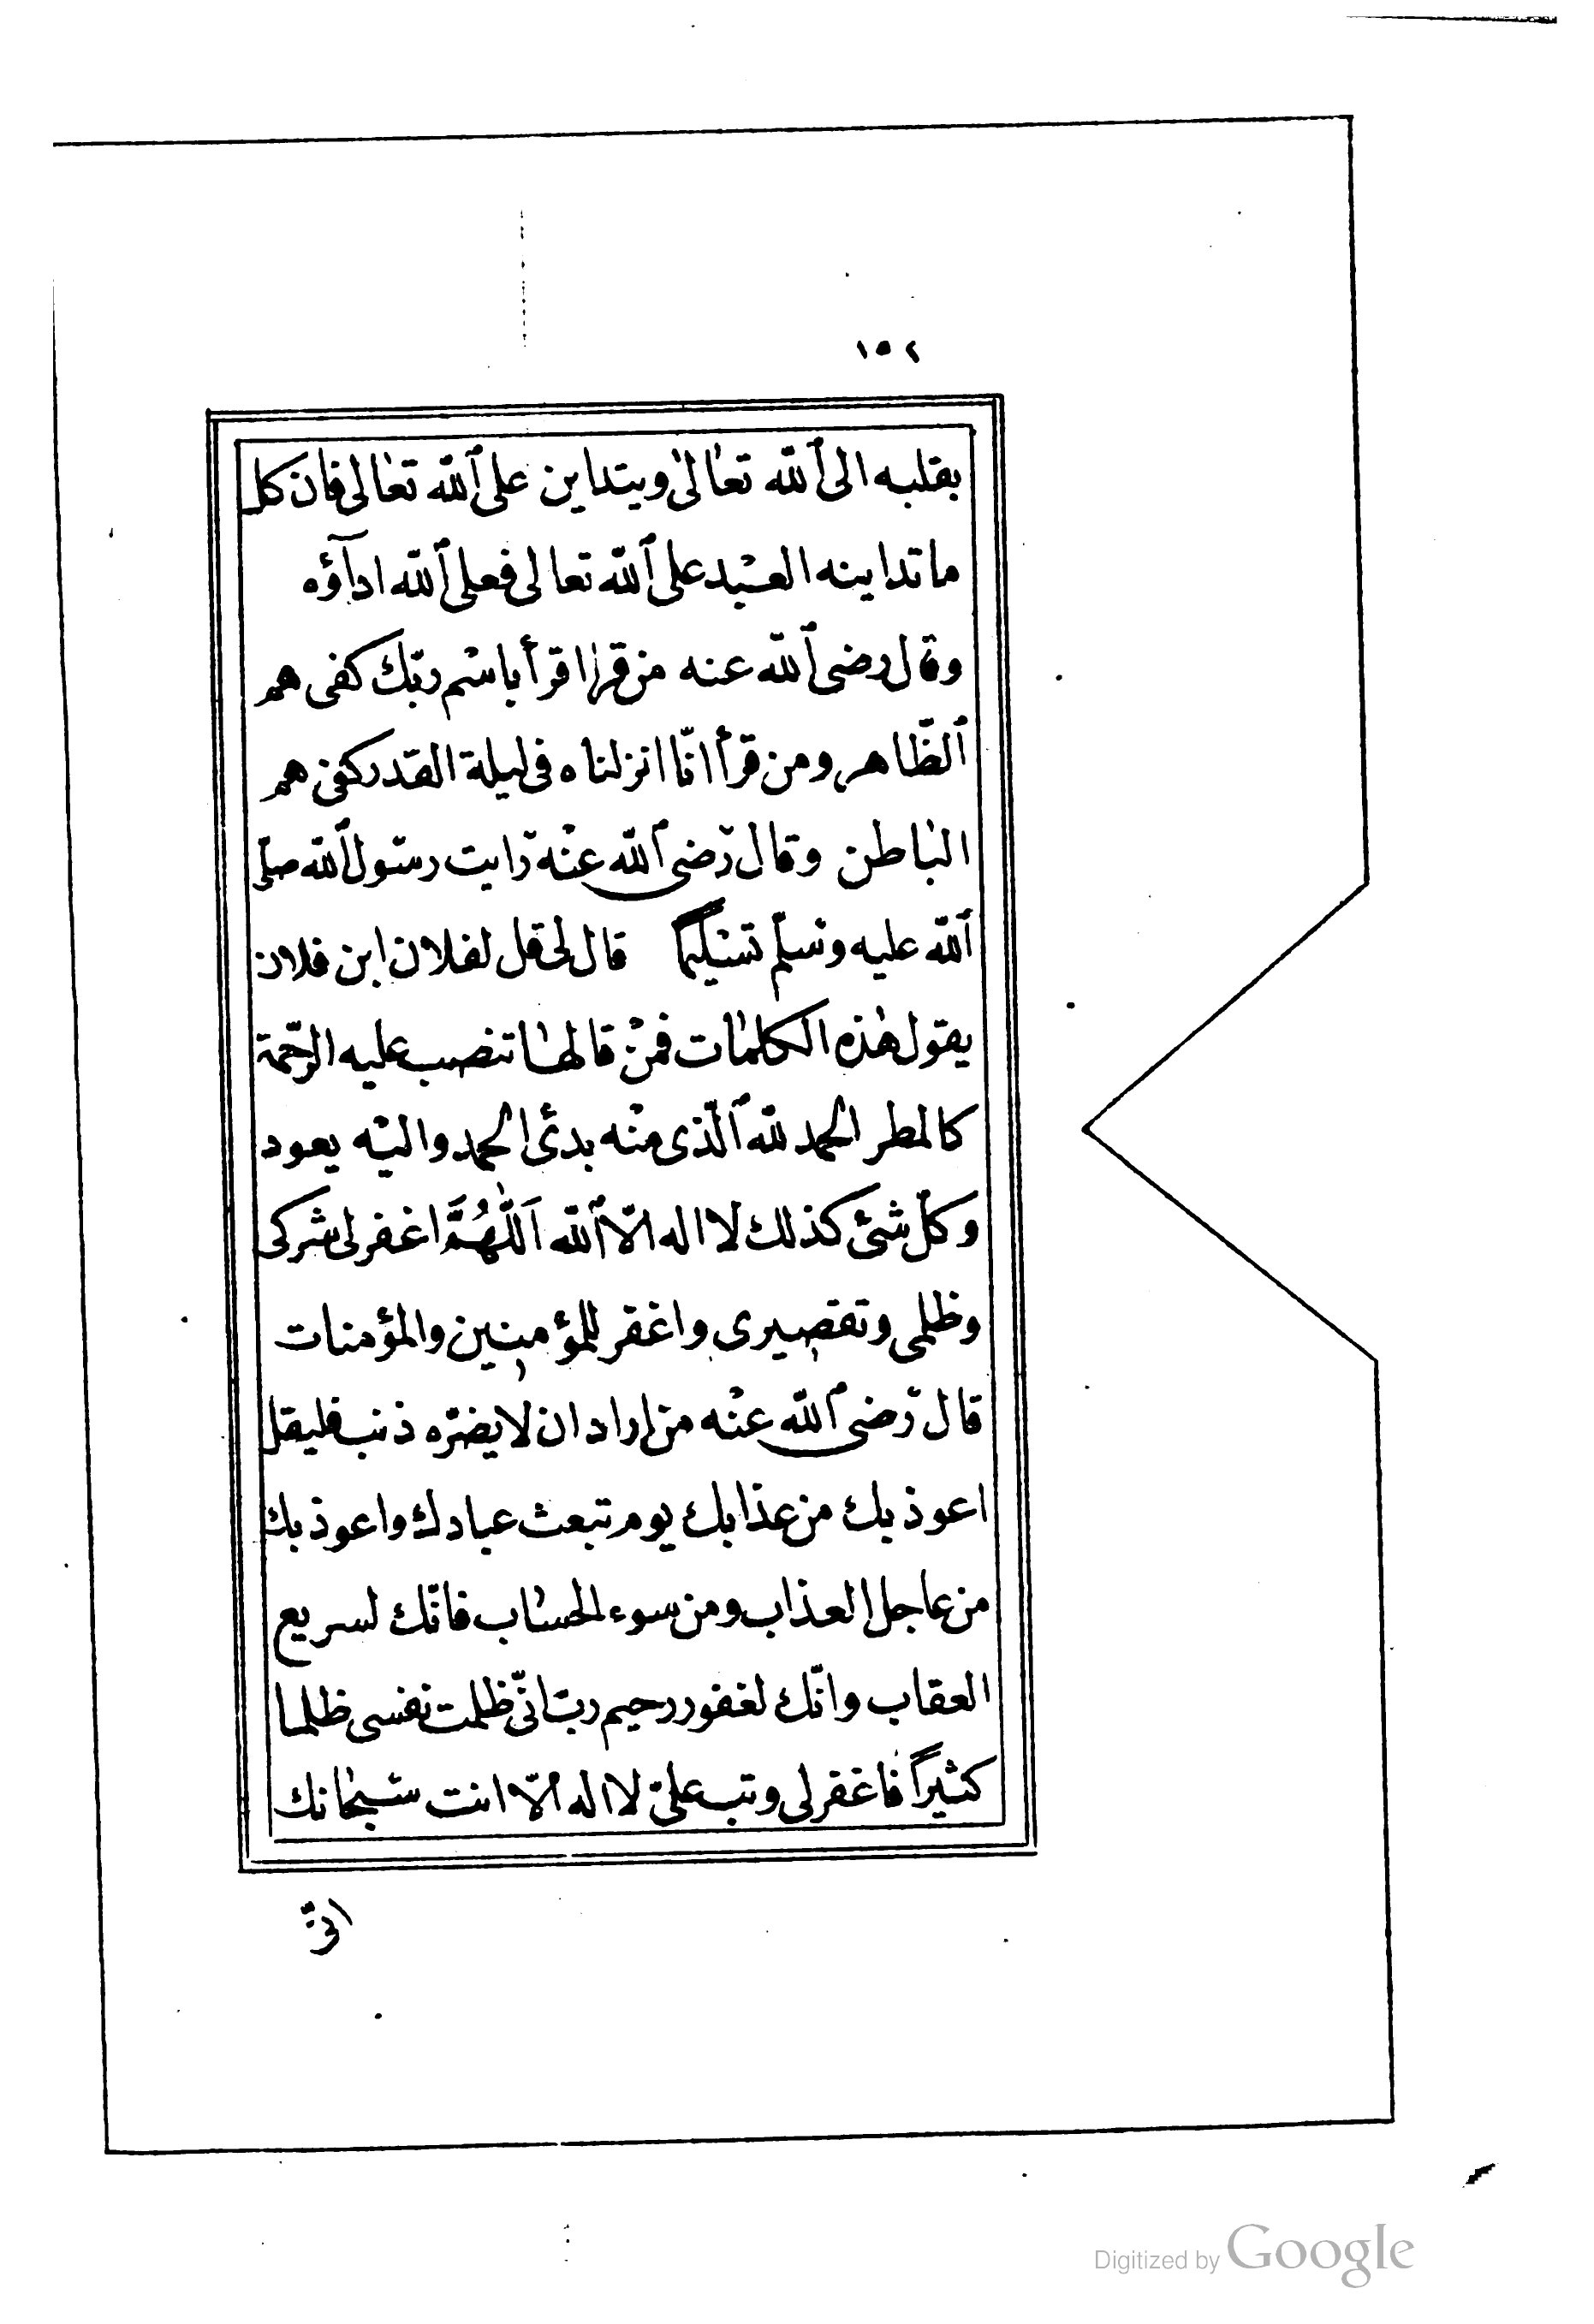 ١٥٢
بقلبه الى ٱللّه تعٰالىٰ ويتداين على ٱللّه تعٰالى فان كل
ما تداينه العبْد على ٱللّه تعالى فعلى ٱللّه ادآؤه
وقال رضى ٱللّه عنه من قرٰا اقرأ باسْم ربّك كفى هم
ٱلظّاهر ومن قرأ انّا انزلناه فى ليلة القدر كفى هم
البٰاطن وقال رّضى ٱللّه عنْه رايت رسول ٱللّه صلّى
ٱللّه عليه وسلّم تسْليمًا قال لى قل لفلان ابن فلان
يقول هٰذه الكلمٰات فمنْ قالهٰا تنصب عليه الرّحمة
كالمطر الحمد للّه ٱلّذى منْه بدئ الحمد واليْه يعود
وكلّ شئ كذلك لا اله الّا ٱللّه اَللّٰهُمَّ اغفر لى شركى
وظلمى وتقصيرى واغفر للمؤمنين والمؤمنات
قال رّضى ٱللّه عنْه من اراد ان لا يضرّه ذنب فليقل
اعوذ بك من عذابك يوم تبعث عبادك واعوذ بك
من عاجل العذاب ومن سوء الحسٰاب فانّك لسريع
العقاب وانّك لغفور رحيم ربّ انّى ظلمت نفسى ظلما
كثيراً فاغفر لى وتب علىّ لا اله الّا انت سبْحٰانك
انّى
Digitized by Google